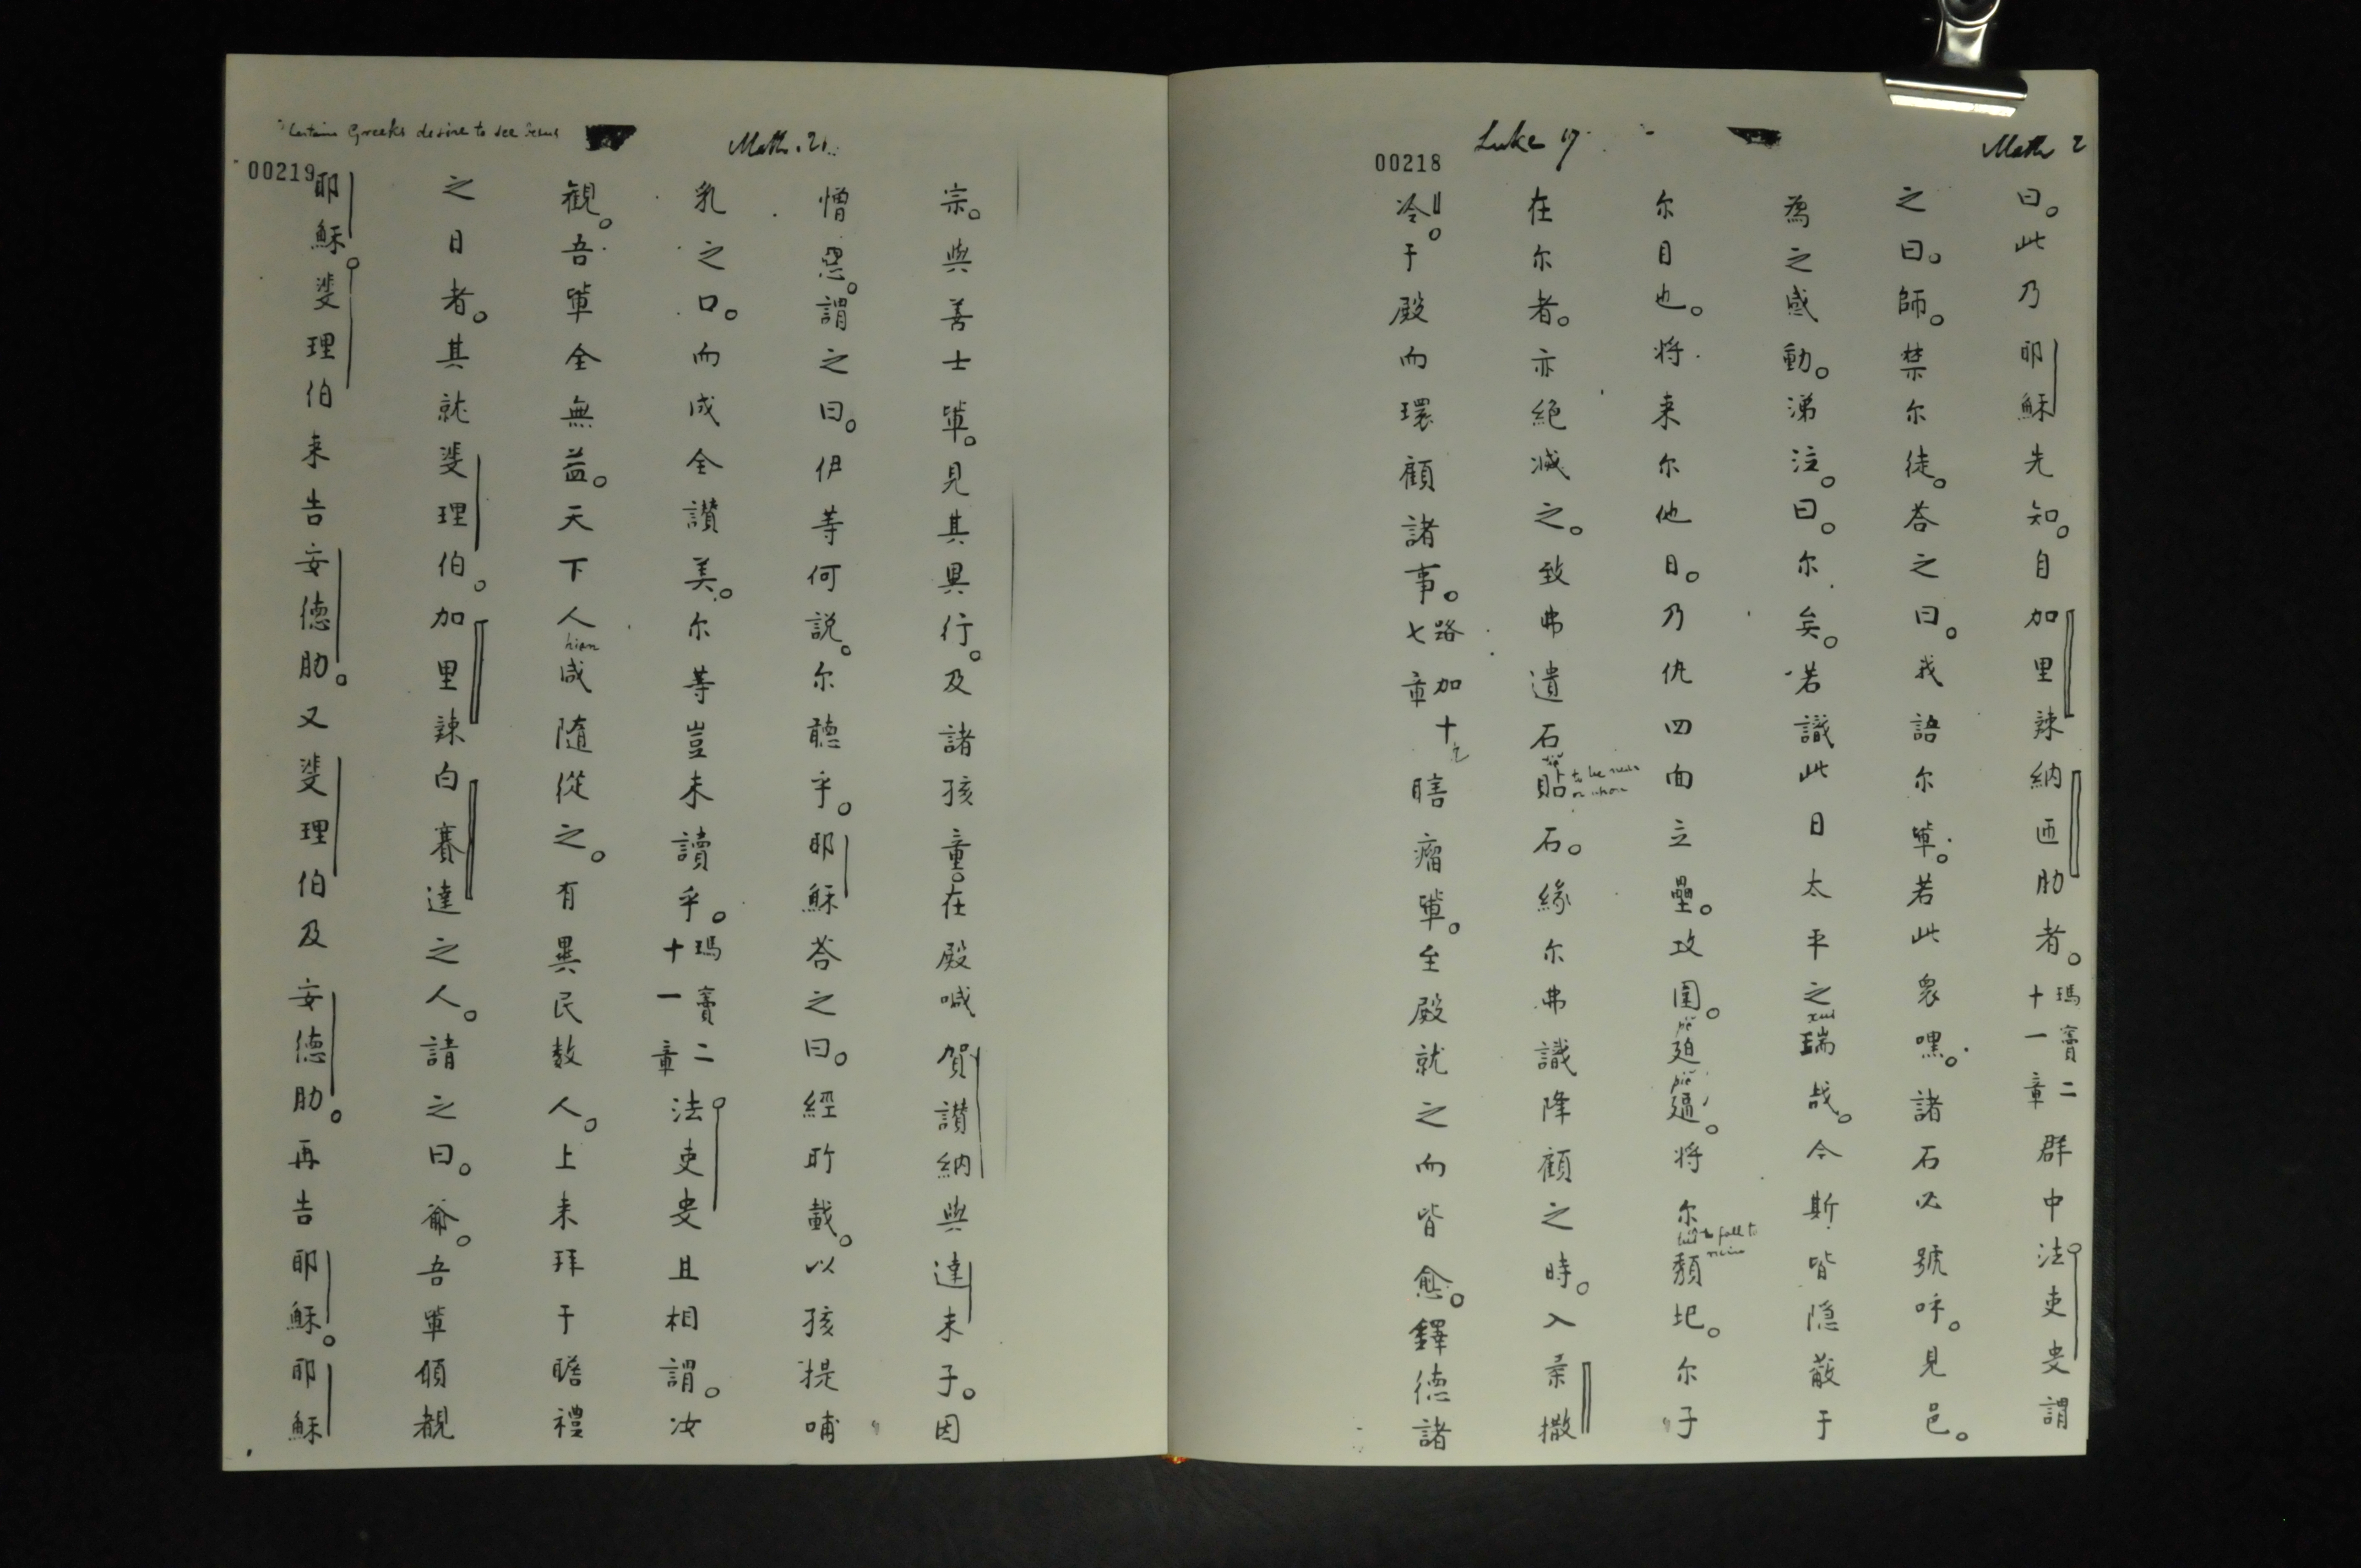 Math 2
Luke 19
00218
曰。此乃耶穌先知。自加里辣納匝肋者。瑪竇二十一章群中法吏叓謂
之曰。師。禁尔徒。荅之曰。我語尔軰。若此衆嘿。諸石必號呼。見邑。
為之感動。涕泣。曰。尔矣。若識此日太平之瑞哉。今斯皆隐蔽于
尔目也。将来尔他日。乃仇四面立壘。攻圍。廹逼。将尔頽圯。尔子
在尔者。亦絕滅之。致弗遺石貼石。緣尔弗識降顧之時。入柔撒
冷。于殿而環顧諸事。路加十七章瞎瘤軰。至殿就之而皆愈。鐸德諸
Math. 21.
Certain Greeks desire to see Jesus
00219
宗。與善士軰。見其異行。及諸孩童。在殿喊賀讃納與達未子。因
憎惡。謂之曰。伊等何説。尔聽乎。耶穌荅之曰。經所載。以孩提哺
乳之口。而成全讃美。尔等豈未讀乎。瑪竇二十一章法吏叓且相謂。汝
観。吾軰全無益。天下人咸随從之。有異民数人。上来拜于瞻禮
之日者。其就斐理伯。加里辣白賽達之人。請之曰。爺。吾軰傾覩
耶穌。斐理伯来告安德肋。又斐理伯及安德肋。再告耶穌。耶穌